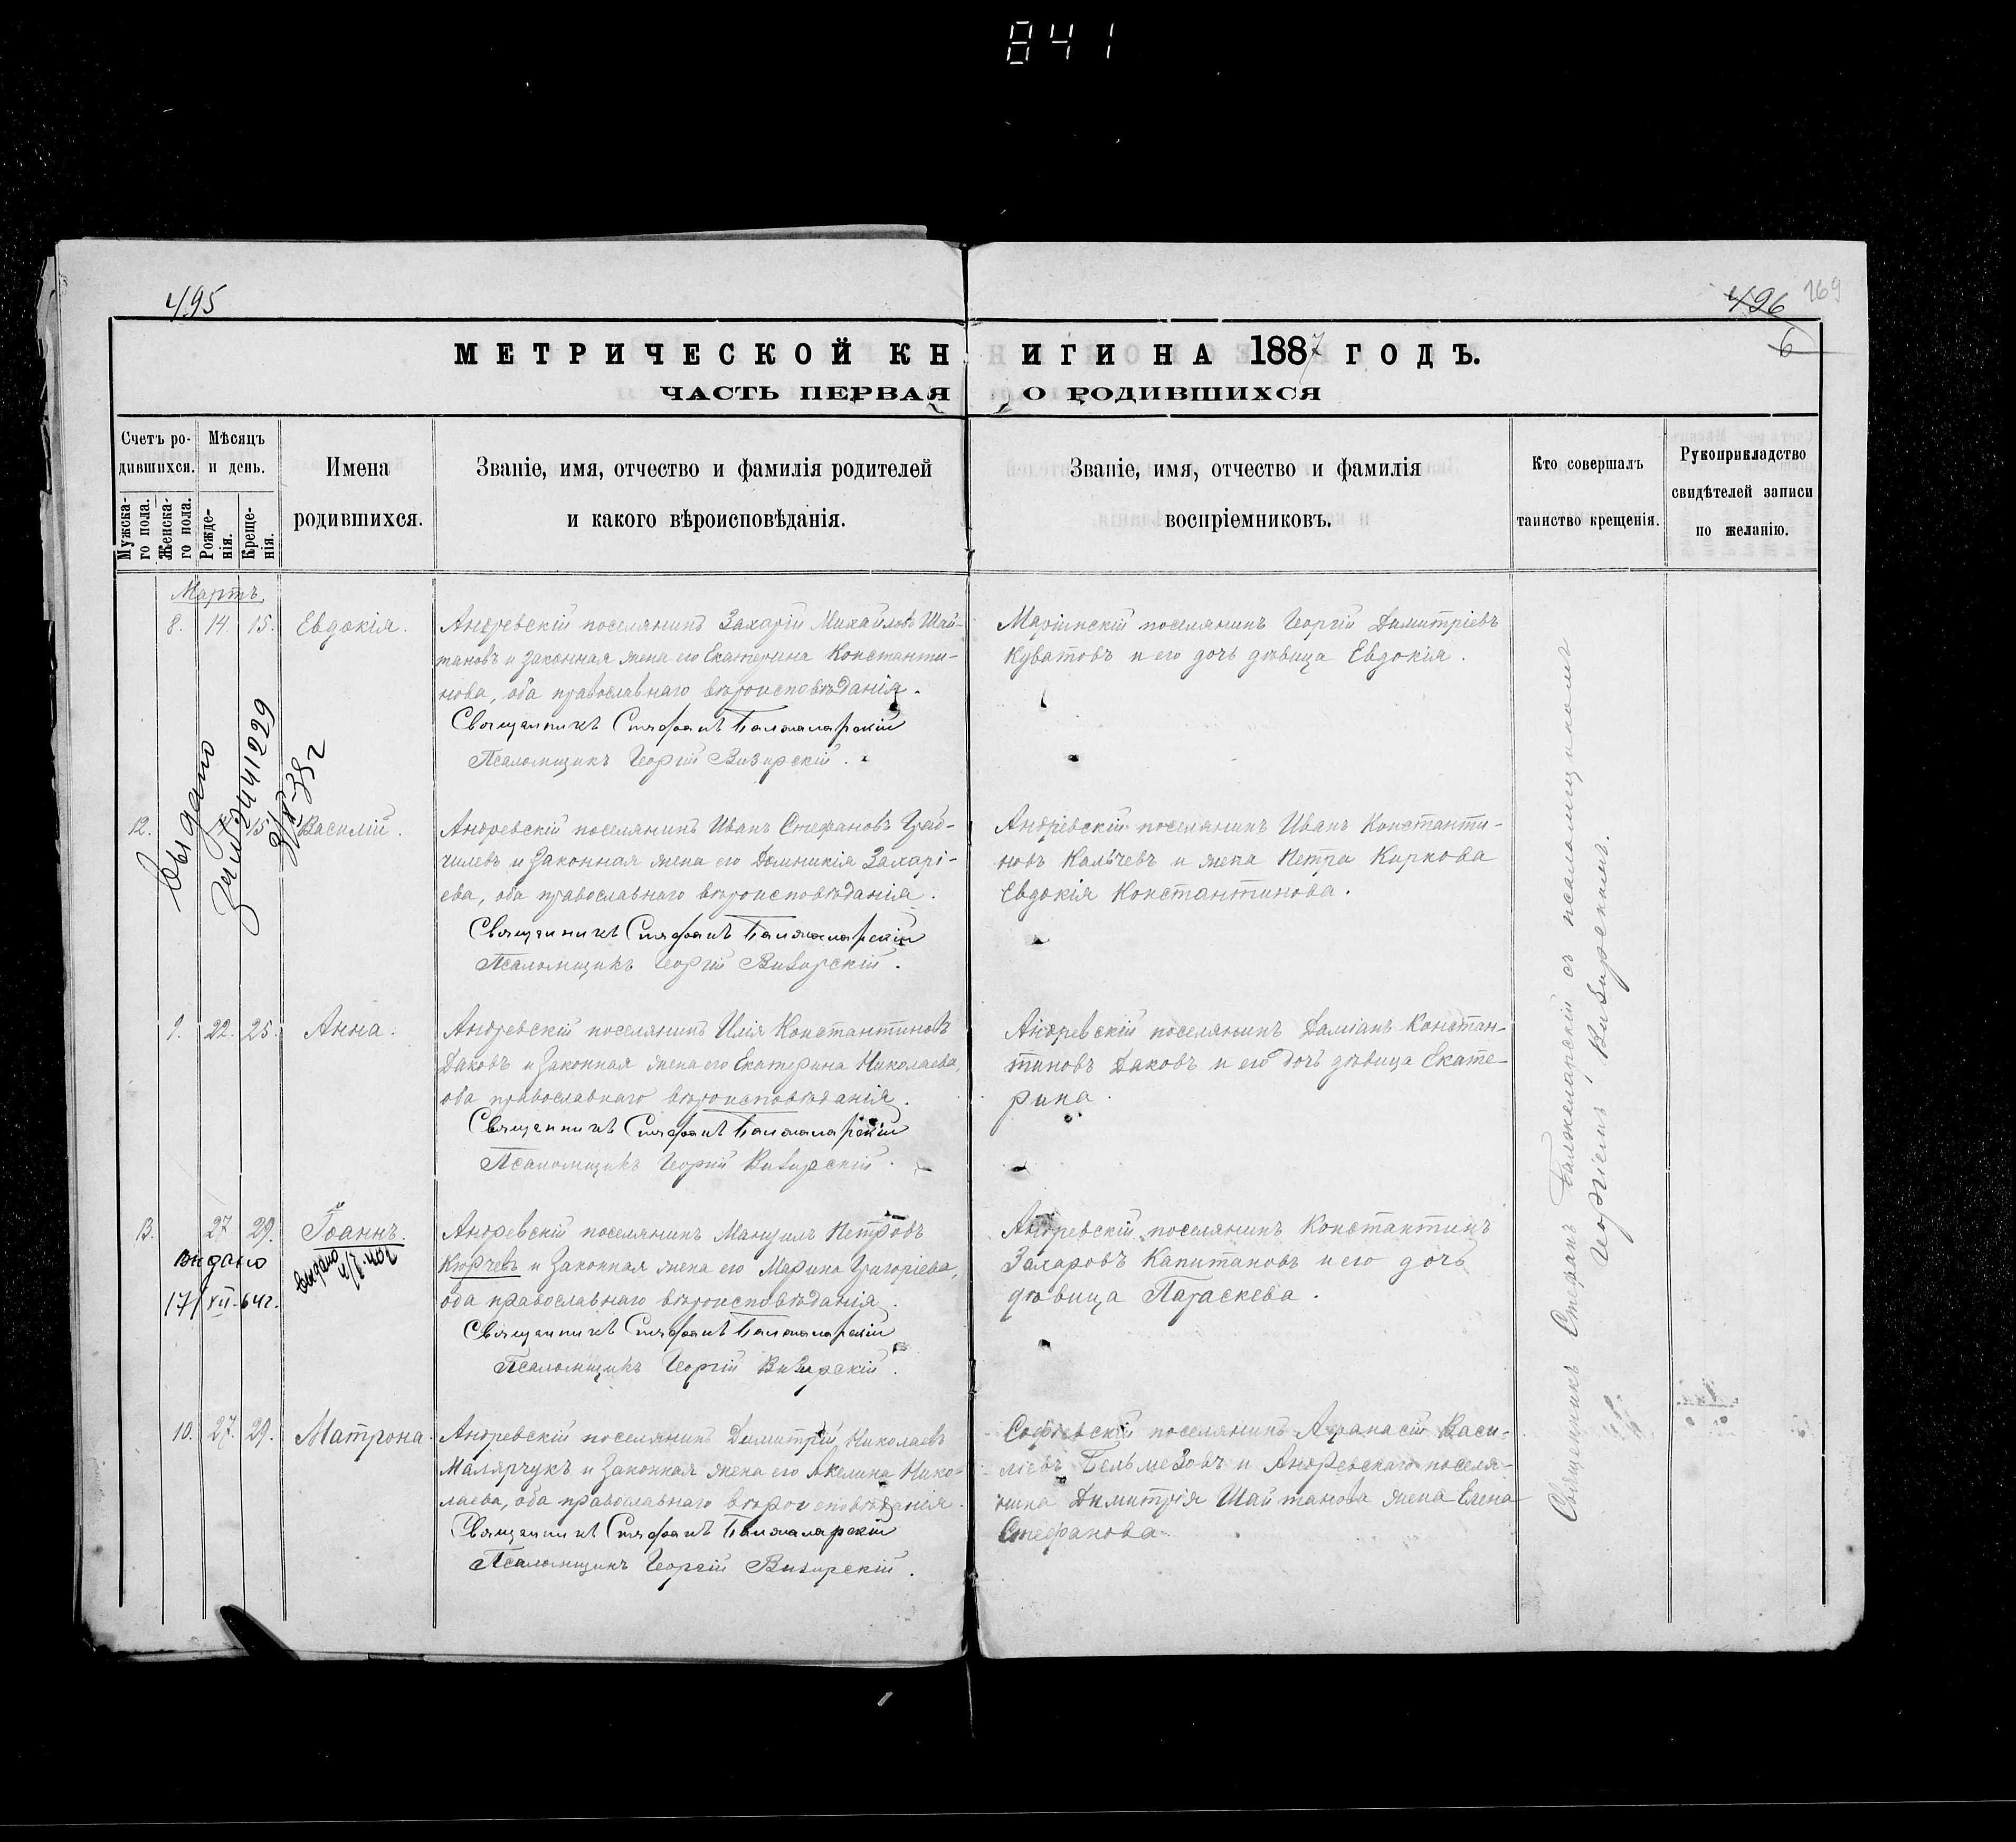 841
495
496 169
6
МЕТРИЧЕСКОЙ КНИГИ НА 1887 ГОДЪ.
ЧАСТЬ ПЕРВАЯ О РОДИВШИХСЯ
Счетъ ро-
дившихся.
Мужска-
го пола.
Женска-
го пола.
Мѣсяцъ
и день.
Рожде-
нія.
Креще-
нія.
Имена
родившихся.
Званіе, имя, отчество и фамилія родителей
и какого вѣроисповѣданія.
Званіе, имя, отчество и фамилія
воспріемниковъ.
Кто совершалъ
таинство крещенія.
Рукоприкладство
свидѣтелей записи
по желанію.
Мартъ.
8. 14. 15. Евдокія.
Андревскій поселянинъ Захарій Михайловъ Шай-
тановъ и законная жена его Екатерина Константи-
нова, оба православнаго вѣроисповѣданія.
Священникъ Стефанъ Балжаларскій
Псаломщикъ Георгій Визирскій.
Маріинскій поселянинъ Георгій Димитріевъ
Куватовъ и его дочь дѣвица Евдокія.
выдано
441229
12. 15. Василій.
Андревскій поселянинъ Иванъ Стефановъ
чилевъ и законная жена его Домникія Захарі-
ева, оба православнаго вѣроисповѣданія.
Священникъ Стефанъ Балжаларскій
Псаломщикъ Георгій Визирскій.
Андревскій поселянинъ Иванъ Константи-
новъ Кальчевъ и жена Петра Киркова
Евдокія Константинова.
9. 22. 25. Анна.
Андревскій поселянинъ Илія Константиновъ
Даковъ и законная жена его Екатерина Николаева,
оба православнаго вѣроисповѣданія.
Священникъ Стефанъ Балжаларскій
Псаломщикъ Георгій Визирскій.
Андревскій поселянинъ Даміанъ Констан-
тиновъ Даковъ и его дочь дѣвица Екате-
рина.
13. 27 29. Іоаннъ.
видано
17/VII-64г.
выдано
Андревскій поселянинъ Мануилъ Петровъ
Кюрчевъ и законная жена его Марина Григоріева,
оба православнаго вѣроисповѣданія.
Священникъ Стефанъ Балжаларскій
Псаломщикъ Георгій Визирскій.
Андревскій поселянинъ Константинъ
Захаровъ Капитановъ и его дочь
дѣвица Параскева.
10. 27. 29. Матрона.
Андревскій поселянинъ Димитрій Николаевъ
Малярчукъ и законная жена его Акелина Нико-
лаева, оба православнаго вѣроисповѣданія.
Священникъ Стефанъ Балжаларскій
Псаломщикъ Георгій Визирскій.
Софіевскій поселянинъ Афанасій Васи-
ліевъ Бельмезовъ и Андревскаго поселя-
нина Димитрія Шайтанова жена Елена
Стефанова.
Священникъ Стефанъ Балжаларскій съ псаломщикомъ
Георгіемъ Визирскимъ.